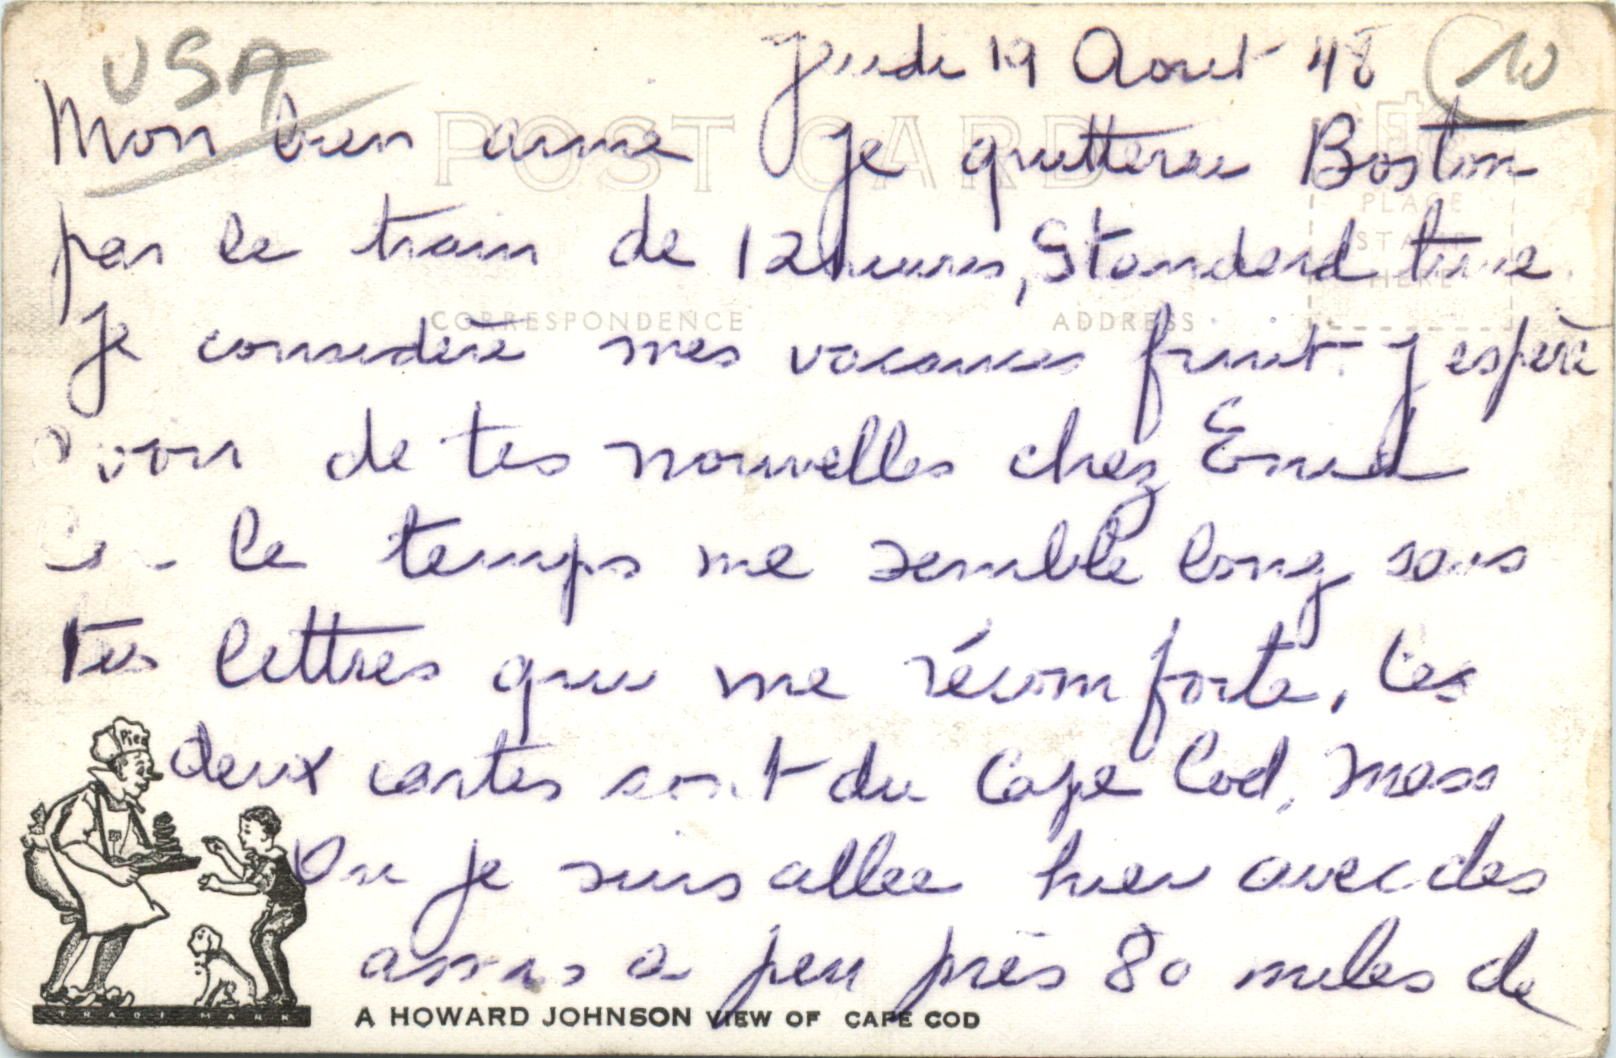 USA
Jeudi 19 Aout 48
10
Mon bien aimé Je quitterai Boston
POST CARD
par le train de 12 heures, Standard time
PLACE
STAMP
HERE
CORRESPONDENCE
ADDRESS
Je considère mes vacances finit. J espère
avoir de tes nouvelles chez Enid
car le temps me semble long sans
tes lettres qui me réconforte. Les
deux cartes sont du Cape Cod, Mass
Ou je suis allee hier avec des
amis a peu près 80 miles de
TRADE MARK
A HOWARD JOHNSON VIEW OF CAPE COD